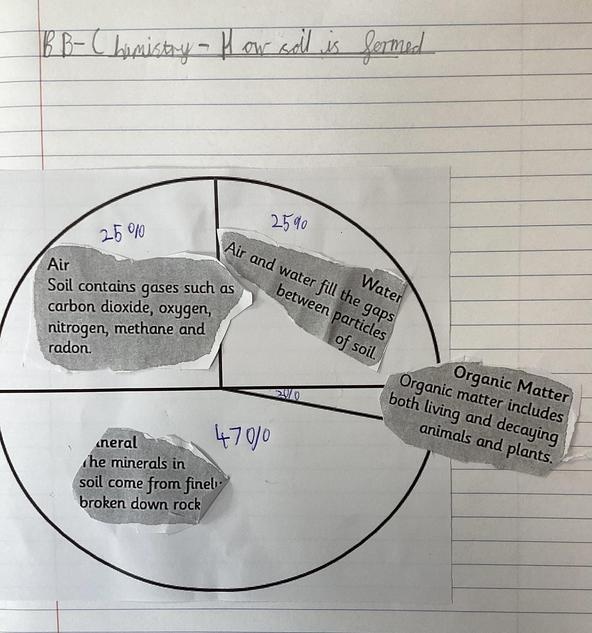 BB-Chemistry - How soil is formed
25%
25%
Air
Soil contains gases such as
carbon dioxide, oxygen,
nitrogen, methane and
radon.
Water
Air and water fill the gaps
between particles
of soil.
Organic Matter
Organic matter includes
both living and decaying
animals and plants.
47%
neral
The minerals in
soil come from finel
broken down rock